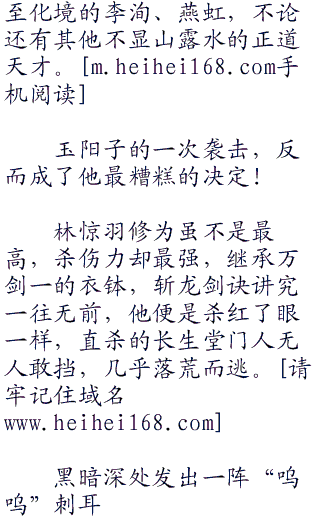 至化境的李洵、燕虹，不论
还有其他不显山露水的正道
天才。[m.heihei168.com手
机阅读]
玉阳子的一次袭击，反
而成了他最糟糕的决定！
林惊羽修为虽不是最
高，杀伤力却最强，继承万
剑一的衣钵，斩龙剑诀讲究
一往无前，他便是杀红了眼
一样，直杀的长生堂门人无
人敢挡，几乎落荒而逃。[请
牢记住域名
www.heihei168.com]
黑暗深处发出一阵“呜
呜”刺耳